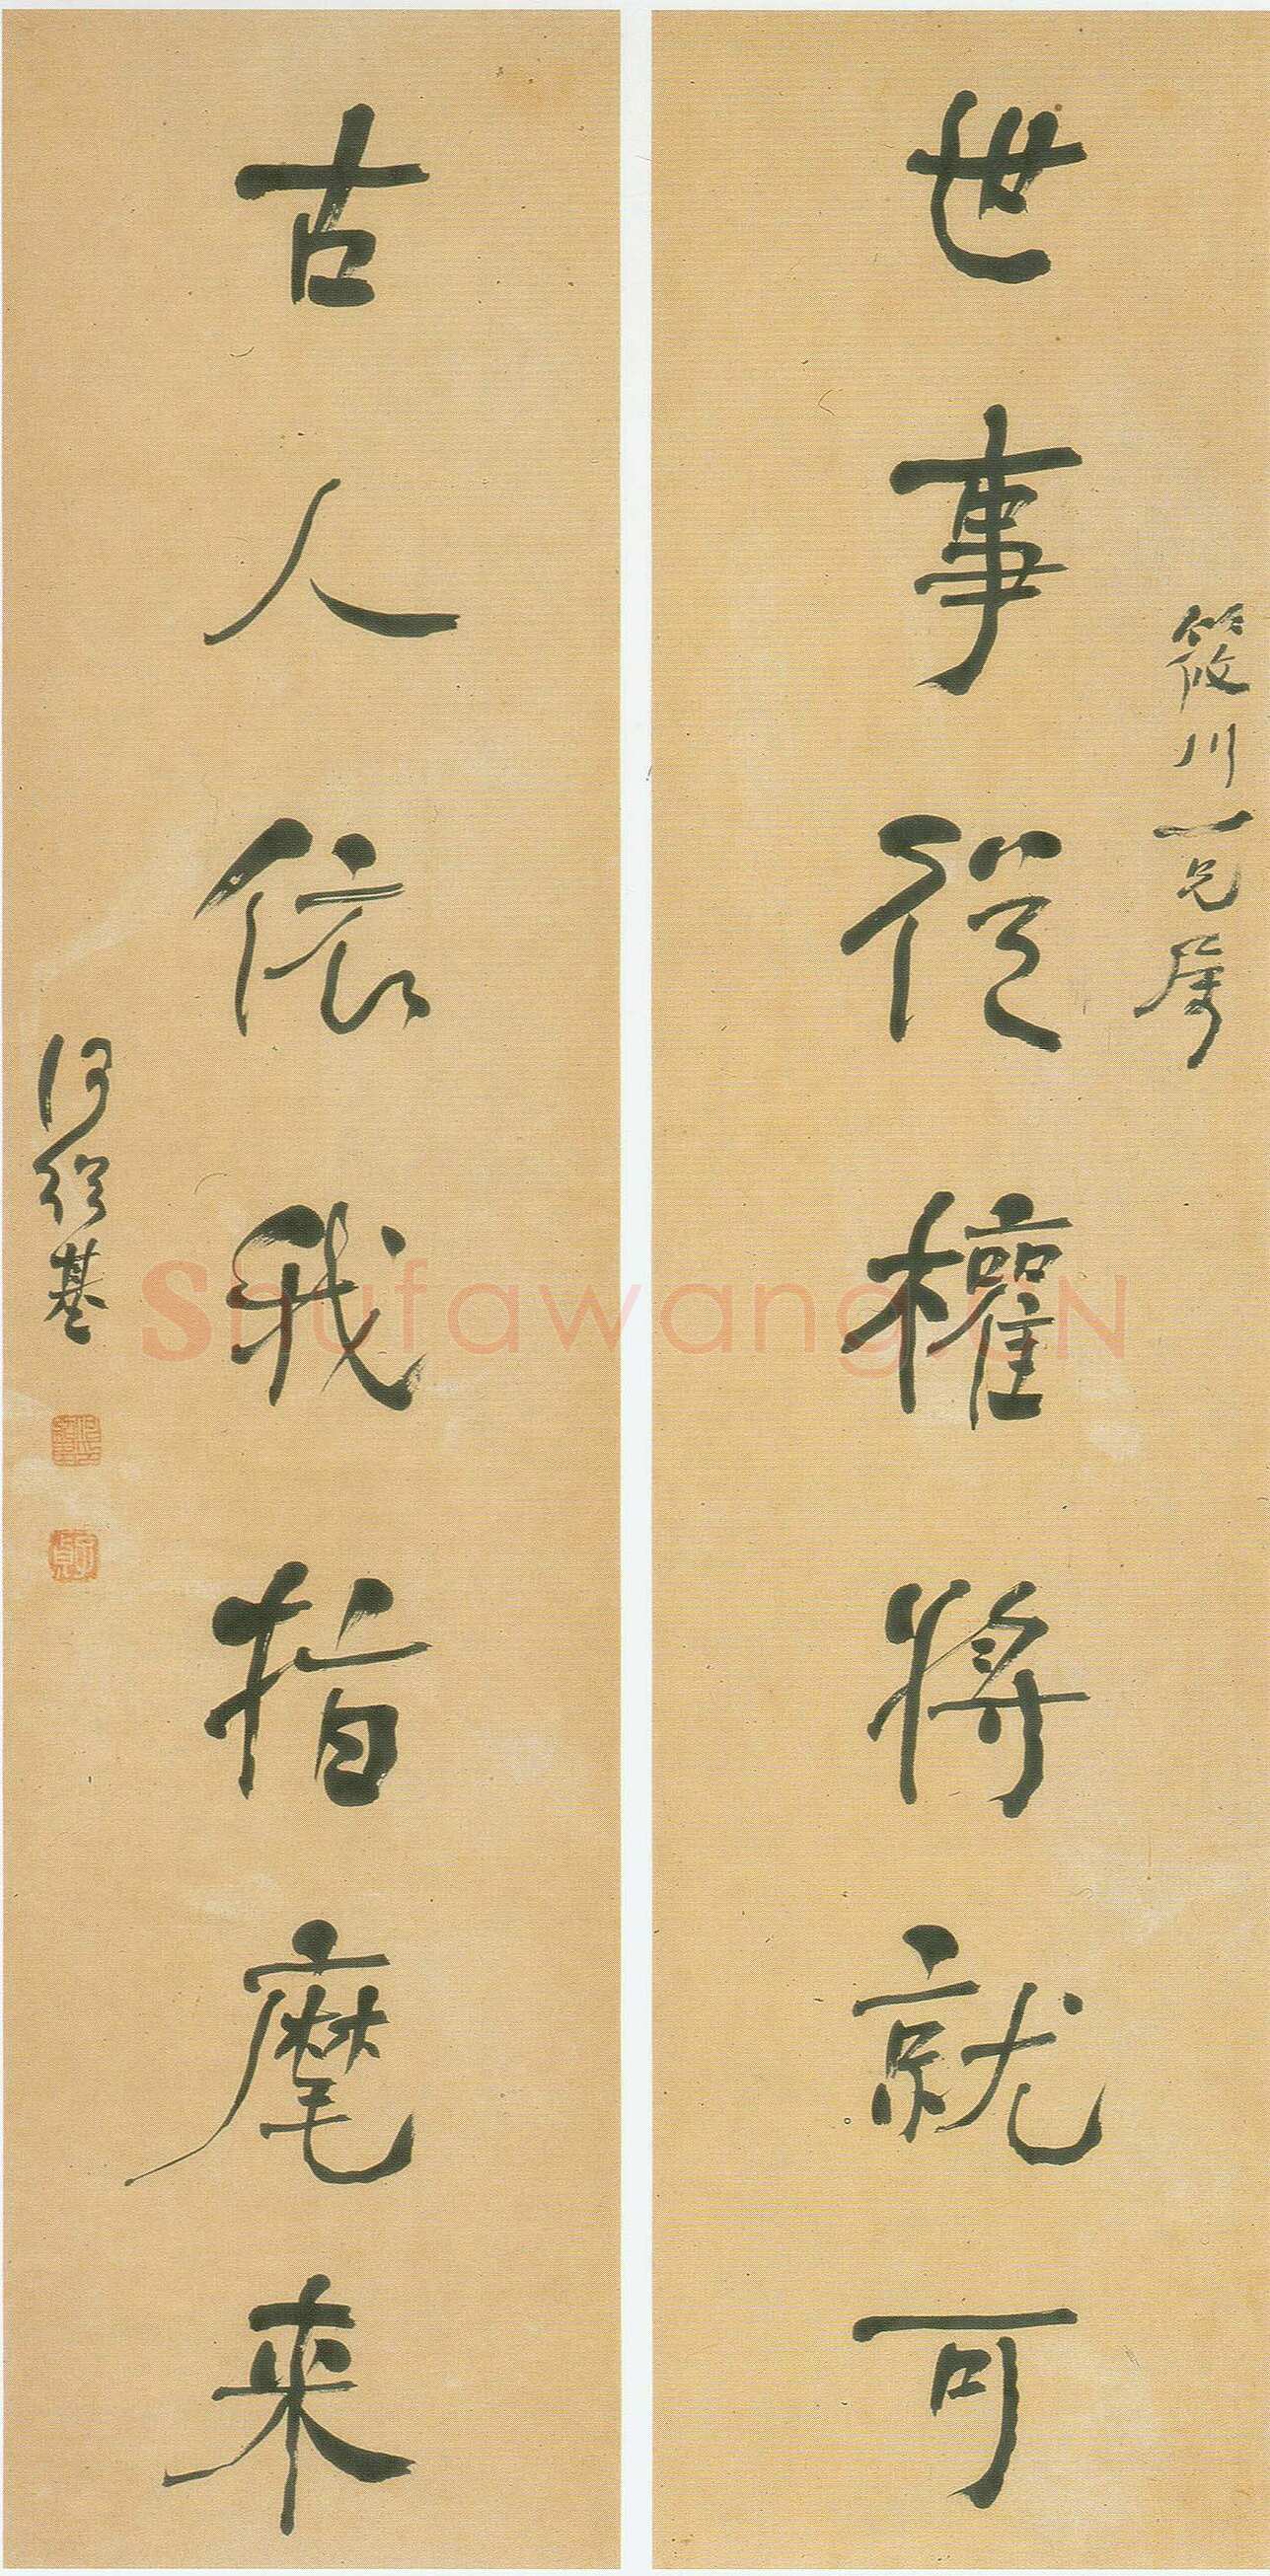 筱川一兄屬
世事從權將就可
古人依我指麾來
何紹基
子貞
Shufawang.CN